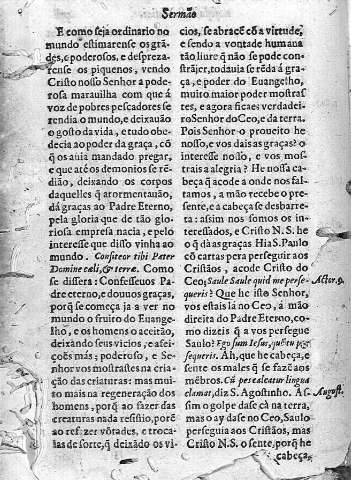 Sermão
E como seja ordinario no
mundo estimarense os grã-
des, e poderosos, e despreza-
rense os piquenos, vendo
Cristo nosso Senhor a pode-
rosa marauilha com que á
voz de pobres pescadores se
rendia o mundo, e deixauão
o gosto da vida, e tudo obe-
decia ao poder da graça, cõ
q̃ os auia mandado pregar,
e que até os demonios se rẽ-
dião, deixando os corpos
daquelles q̃ atormentauão,
dá graças ao Padre Eterno,
pela gloria que de tão glo-
riosa empresa nacia, e pelo
interesse que disso vinha ao
mundo. Confiteor tibi Pater
Domine cæli, & terræ. Como
se dissera: Confessouos Pa-
dre eterno, e douuos graças,
porq̃ se começa ja a ver no
mundo o fruito do Euange-
lho, e os homens o aceitão,
deixando seus vicios, e afei-
ções más; poderoso, e Se-
nhor vos mostrastes na cria-
ção das criaturas: mas mui-
to mais na regeneração dos
homens, porq̃ ao fazer das
creaturas nada resistio, porẽ
ao refazer võtades, e troca-
las de sorte, q̃ deixãdo os vi-
cios, se abracẽ cõ a virtude,
e sendo a vontade humana
tão liure q̃ não se pode con-
strãjer, todauia se rẽda á gra-
ça, e poder do Euangelho,
muito maior poder mostras-
tes, e agora ficaes verdadei-
ro Senhor do Ceo, e da terra.
Pois Senhor o proueito he
nosso, e vos dais as graças? o
interesse nosso, e vos mos-
trais a alegria? He nossa ca-
beça q̃ acode a onde nos fal-
tamos, a mão recebe o pre-
sente, e a cabeça se desbarre-
ta: assim nos somos os in-
teressados, e Cristo N. S. he
o q̃ dá as graças Hia S. Paulo
cõ cartas pera perseguir aos
Cristãos, acode Cristo do
Ceo; Saule Saule quid me perse-
queris? Que he isto Senhor,
vos estais lá no Ceo, á mão
direita do Padre Eterno, co-
mo dizeis q̃ a vos persegue
Saulo? Ego sum Iesus, quẽ tu per-
sequeris. Ah, que he cabeça, e
sente os males q̃ se fazẽ aos
mẽbros. Cũ pes calcatur lingua
clamat, diz S. Agostinho. As-
sim o golpe dase cá na terra,
mas o ay dase no Ceo, Saulo
perseguia aos Cristãos, mas
Cristo N. S. o sente, porq̃ he
cabeça,
Actor. 9.
August.